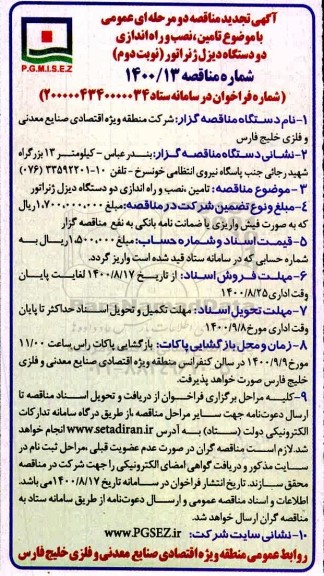 آگهی تجدید مناقصه دو مرحله ای عمومی
با موضوع تامین، نصب و راه اندازی
دو دستگاه دیزل ژنراتور (نوبت دوم)
P.G.M.I.S.E.Z
شماره مناقصه ۱۴۰۰/۱۳
(شماره فراخوان در سامانه ستاد ۲۰۰۰۰۰۴۳۴۰۰۰۰۰۳۴)
۱- نام دستگاه مناقصه گزار: شرکت منطقه ویژه اقتصادی صنایع معدنی
و فلزی خلیج فارس
۲- نشانی دستگاه مناقصه گزار: بندرعباس - کیلومتر ۱۳ بزرگراه
شهید رجائی جنب پاسگاه نیروی انتظامی خونسرخ - تلفن ۱۰-۳۳۵۹۲۲۰۱ (۰۷۶)
۳- موضوع مناقصه: تامین، نصب و راه اندازی دو دستگاه دیزل ژنراتور
۴- مبلغ و نوع تضمین شرکت در مناقصه: مبلغ ۱،۷۰۰،۰۰۰،۰۰۰ ریال
که به صورت فیش واریزی یا ضمانت نامه بانکی به نفع مناقصه گزار
۵- قیمت اسناد و شماره حساب: مبلغ ۱،۵۰۰،۰۰۰ ریال به
شماره حسابی که در سامانه ستاد قید شده است واریز گردد.
۶- مهلت فروش اسناد: از تاریخ ۱۴۰۰/۸/۱۷ لغایت پایان
وقت اداری ۱۴۰۰/۸/۲۵
۷- مهلت تحویل اسناد: مهلت تکمیل و تحویل اسناد حداکثر تا پایان
وقت اداری مورخ ۱۴۰۰/۹/۸
۸- زمان و محل بازگشایی پاکات: بازگشایی پاکات راس ساعت ۱۱/۰۰
مورخ ۱۴۰۰/۹/۹ در سالن کنفرانس منطقه ویژه اقتصادی صنایع معدنی و فلزی
خلیج فارس صورت خواهد پذیرفت.
۹- کلیه مراحل برگزاری فراخوان از دریافت و تحویل اسناد مناقصه تا
ارسال دعوتنامه جهت سایر مراحل مناقصه ،از طریق درگاه سامانه تدارکات
الکترونیکی دولت (ستاد) به آدرس www.setadiran.ir انجام خواهد
شد. لازم است مناقصه گران در صورت عدم عضویت قبلی ،مراحل ثبت نام در
سایت مذکور و دریافت گواهی امضای الکترونیکی را جهت شرکت در مناقصه
محقق سازند. تاریخ انتشار فراخوان در سامانه تاریخ ۱۴۰۰/۸/۱۷ می باشد.
اطلاعات و اسناد مناقصه عمومی و ارسال دعوتنامه از طریق سامانه ستاد به
مناقصه گران ارسال خواهد شد.
۱۰- نشانی سایت شرکت: www.PGSEZ.ir
روابط عمومی منطقه ویژه اقتصادی صنایع معدنی و فلزی خلیج فارس